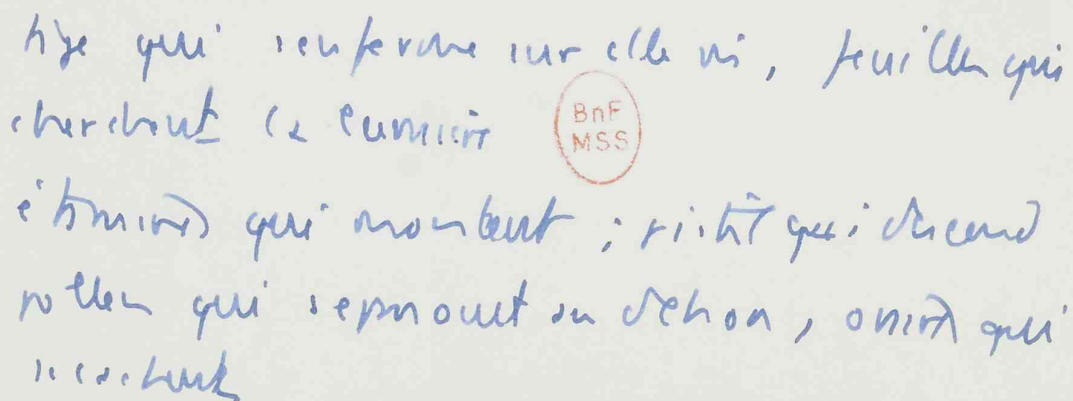 tige qui s'enferme sur elle , feuilles qui
cherchent la lumière
BnF
MSS
étamines qui montent ; pistil qui descend
pollen qui se promout en dehors, ovaires qui
se cachent